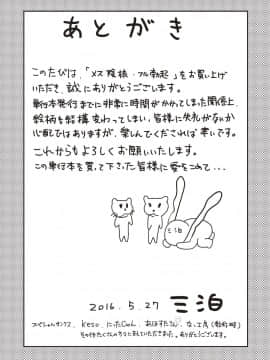 あとがき
このたびは、「メス陰核・フル勃起」をお買い上げ
いただき、誠にありがとうございます。
単行本発行までに非常に時間がかかってしまった関係上、
絵柄も結構変わってしまい、皆様に失礼がないか
心配ではありますが、楽しんでくだされば幸いです。
これからもよろしくお願いいたします。
この単行本を買って下さった皆様に愛をこめて・・・
三泊
2016.5.27 三泊
スペシャルサンクス、
ありがとうございます。